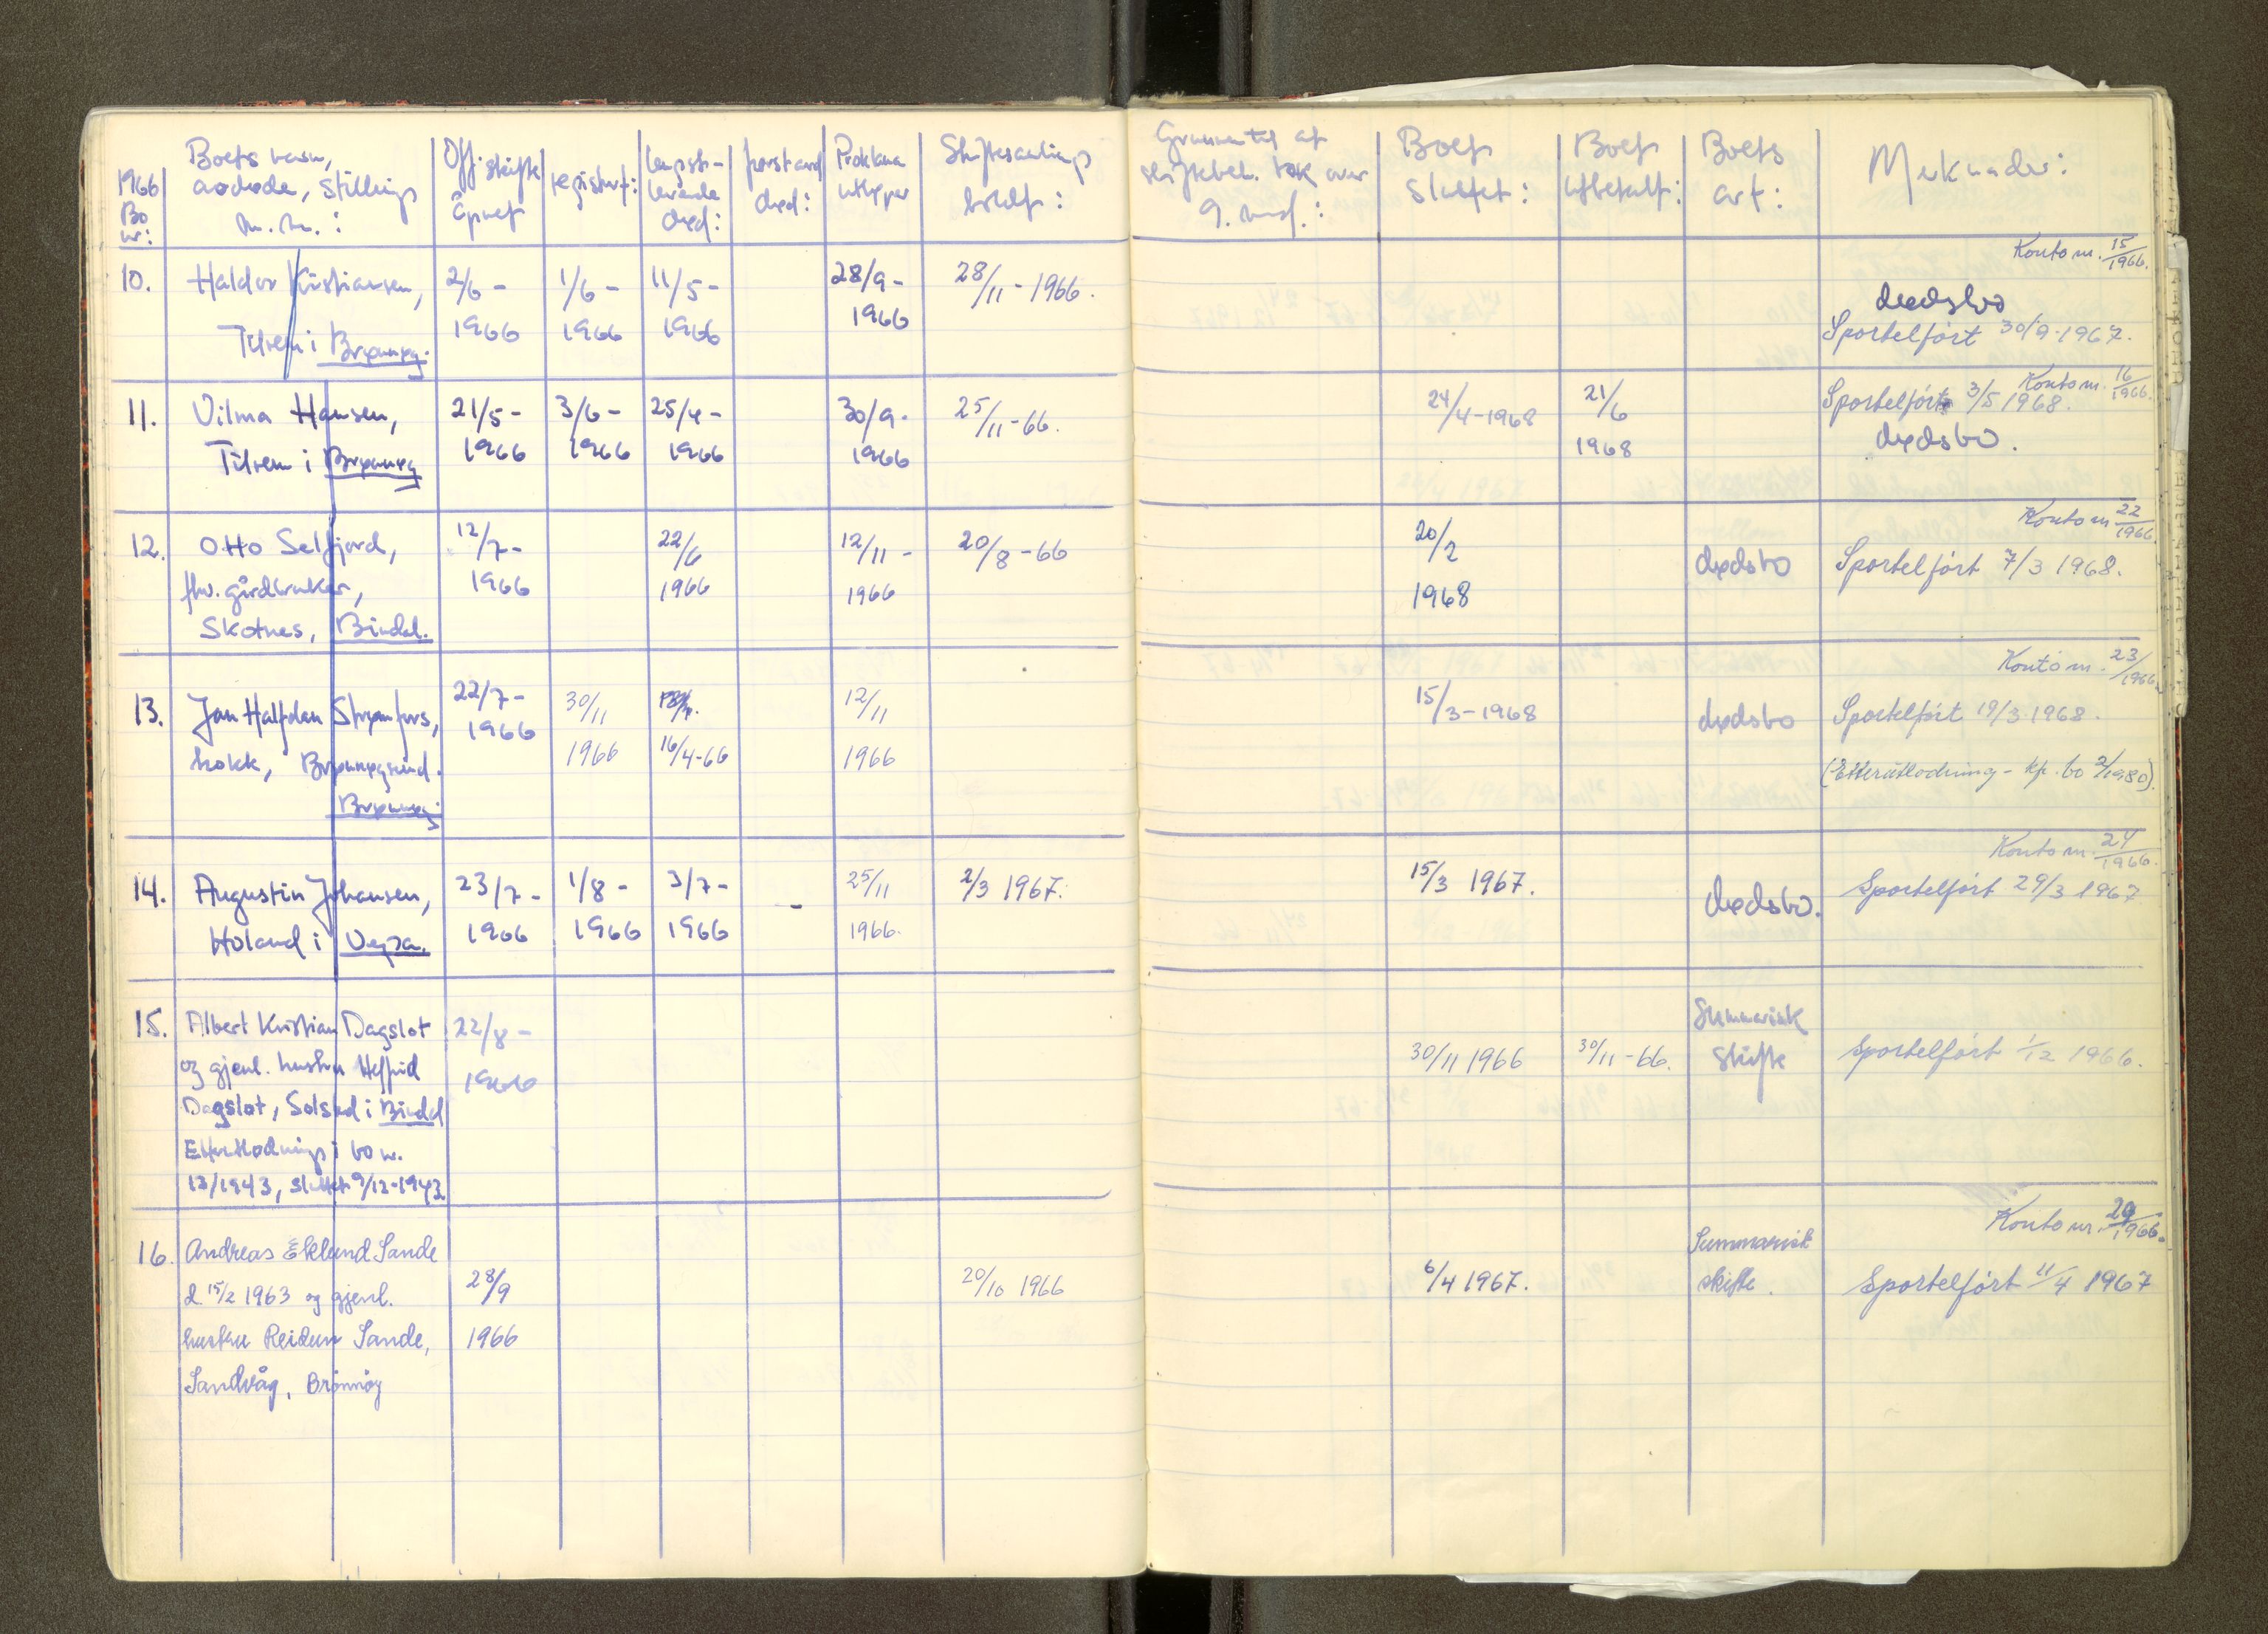 1966
Bo
nr:
Boets navn,
adresse, stilling
m.m.:
Off. skifte
åpnet
registrert:
lengst-
levende
død:
førstavd.
død:
Proklama
utløper
Skiftesamling
holdt:
skiftebeh. tok over
9. mnd.:
Boet
sluttet:
Boet
utbetalt:
Boets
art:
Merknader:
10.
Haldor Kristiansen,
Tilrem i Brønnøy.
2/6 -
1966
1/6 -
1966
11/5 -
1966
28/9 -
1966
28/11 - 1966.
Konto nr. 15/1966.
dødsbo
Sportelført 30/9-1967.
11.
Vilma Hansen,
Tilrem i Brønnøy
21/5 -
1966
3/6 -
1966
25/4 -
1966
30/9.
1966
25/11 - 66.
24/4 - 1968
21/6
1968
Konto nr. 16/1966.
Sportelført 3/5 1968.
dødsbo.
12.
Otto Selfjord,
fhv. gårdbruker,
Skotnes, Bindal.
12/7 -
1966
22/6
1966
12/11 -
1966
20/8 - 66
20/2
1968
dødsbo
Konto nr 22/1966.
Sportelført 7/3 1968.
13.
Jan Halfdan Strømfors,
kokk, Brønnøysund.
Brønnøy.
22/7 -
1966
30/11
1966
16/4-66
12/11
1966
15/3 - 1968
dødsbo
Konto nr. 23/1966.
Sportelført 19/3 1968.
(Etterutlodning - kp. bo 2/1980).
14.
Augustin Johansen,
Holand i Vega.
23/7 -
1966
1/8 -
1966
3/7 -
1966
-
25/11
1966.
2/3 1967.
15/3 1967.
dødsbo.
Konto nr. 24/1966.
Sportelført 29/3 1967
15.
Albert Kristian Dagslot
og gjenl. hustru Helfrid
Dagslot, Solstad i Bindal
Etterutlodning i bo nr.
12/1943, sluttet 9/12-1943
22/8 -
1966
30/11 1966
30/11 - 66.
Summarisk
skifte
Sportelført 1/12 1966.
16.
Andreas Eklund Sande
d. 15/2 1963 og gjenl.
hustru Reidun Sande,
Sandvåg, Brönnöy
28/9
1966
20/10 1966
6/4 1967.
Summarisk
skifte.
Konto nr. 29/1966.
Sportelført 11/4 1967